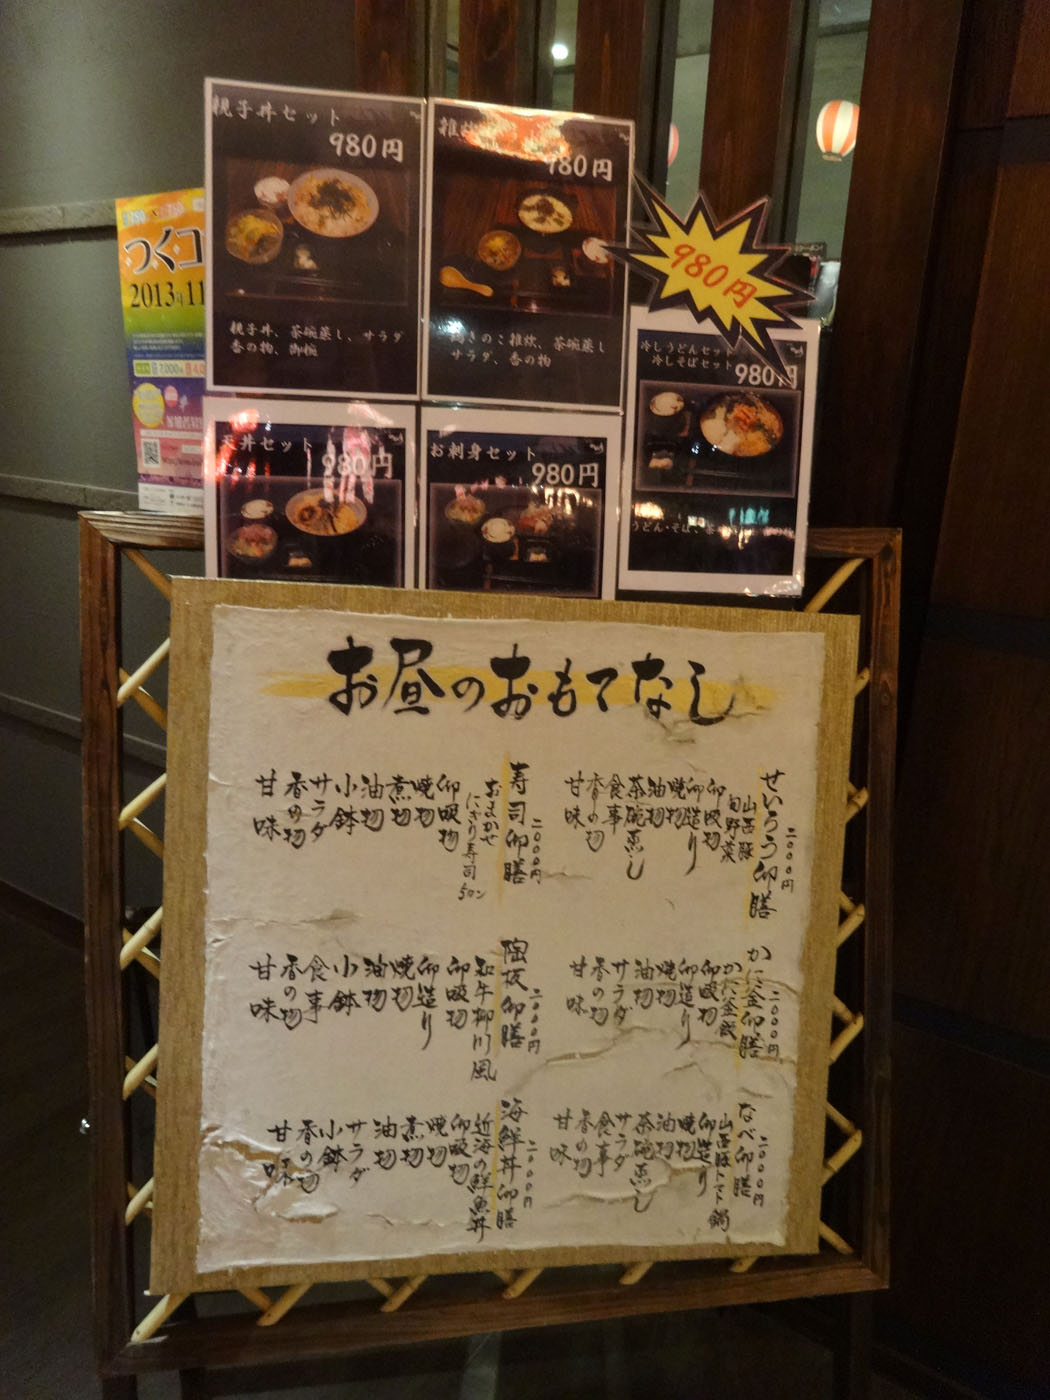 親子丼セット
980円
親子丼、茶碗蒸し、サラダ
香の物、御椀
980円
きのこ雑炊、茶碗蒸し
サラダ、香の物
980円
冷しうどんセット
冷しそばセット
980円
天丼セット
980円
お刺身セット
980円
つくコ
2013年11
お昼のおもてなし
せいろう御膳
二〇〇〇円
山西豚
旬野菜
御吸物
御造り
焼物
油物
茶碗蒸し
食事
香の物
甘味
寿司御膳
二〇〇〇円
おまかせ
にぎり寿司
5カン
御吸物
焼物
煮物
油物
小鉢
サラダ
香の物
甘味
かに釜御膳
二〇〇〇円
かに釜飯
御吸物
御造り
焼物
油物
サラダ
香の物
甘味
陶板御膳
二〇〇〇円
和牛柳川風
御吸物
御造り
焼物
油物
小鉢
食事
香の物
甘味
なべ御膳
二〇〇〇円
山西豚トマト鍋
御造り
焼物
油物
茶碗蒸し
サラダ
食事
香の物
甘味
海鮮丼御膳
二〇〇〇円
近海の鮮魚丼
御吸物
焼物
煮物
油物
サラダ
小鉢
香の物
甘味